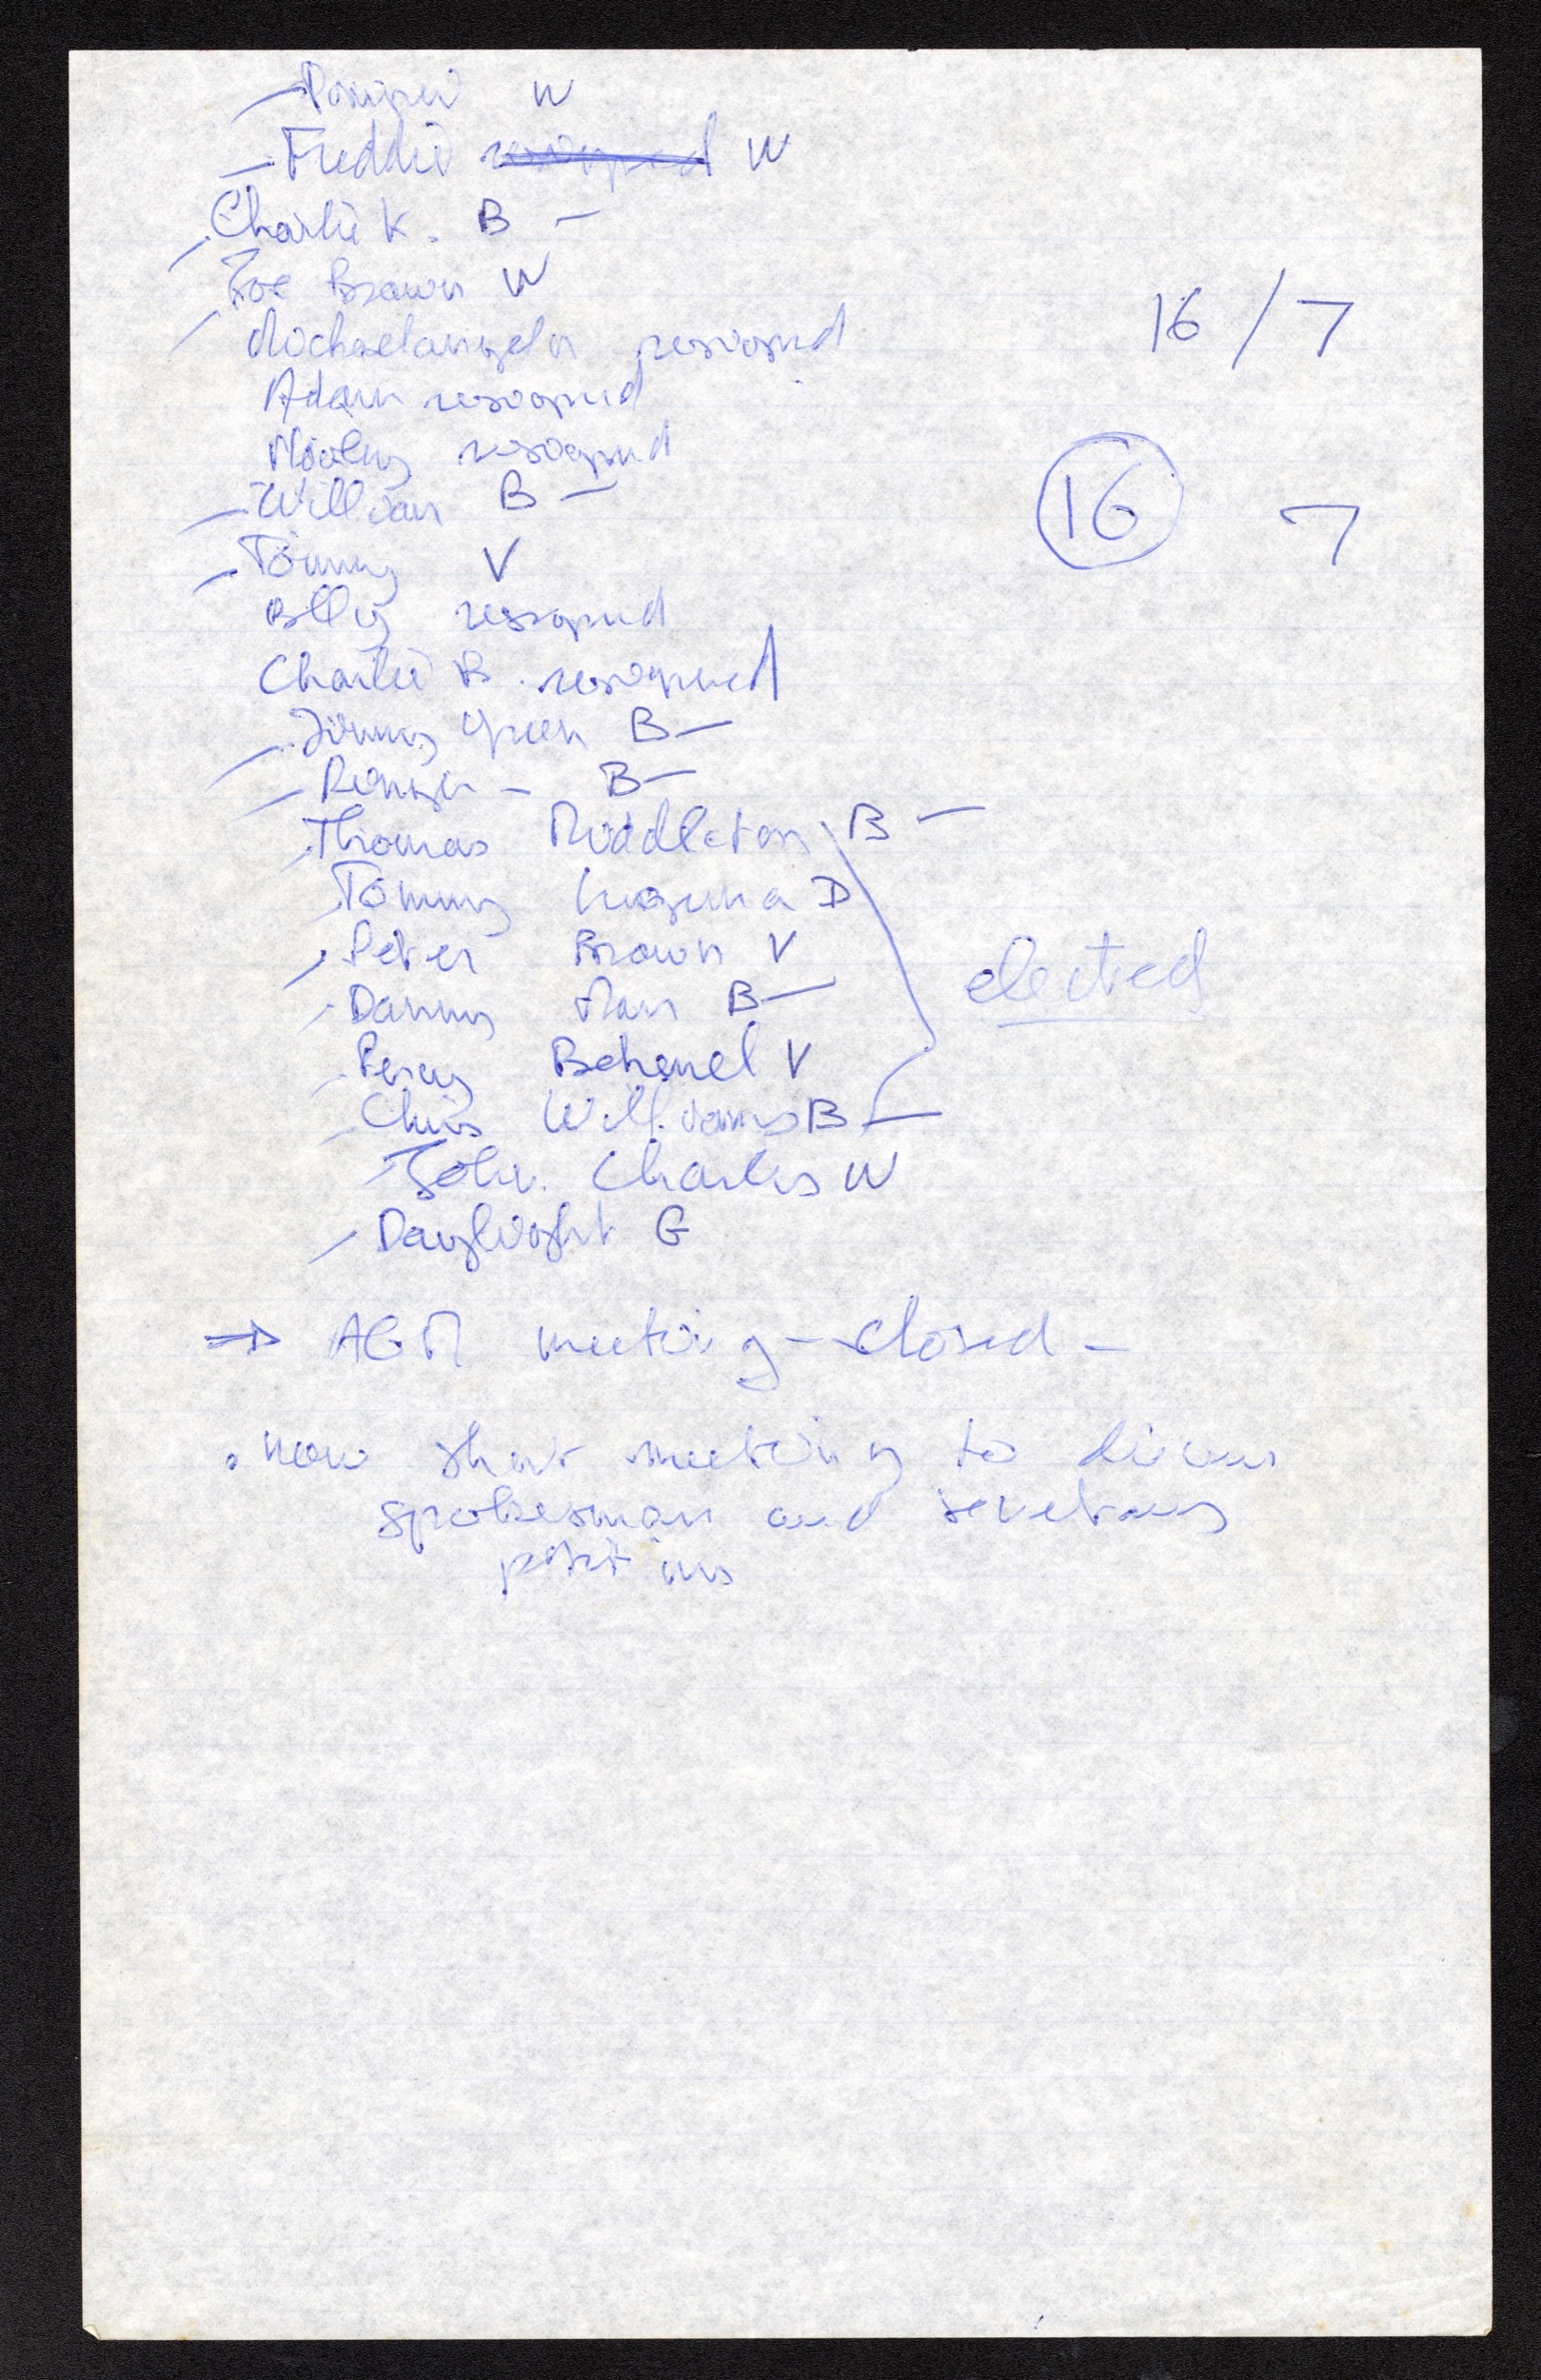 W
Freddie resigned W
Charlie K. B –
Joe Brown W
16 / 7
Michaelangelo resigned
Adam resigned
resigned
William B –
16 7
Tommy V
Billy resigned
Charlie B. resigned
Jimmy Green B –
– B –
Thomas Middleton B –
Tommy D
Peter Brown V
elected
Danny Man B –
Percy V
Chris Williams B –
John Charles W
Daylight G
⇒ AGM meeting – closed –
. now short meeting to discuss
spokesman and secretary
positions